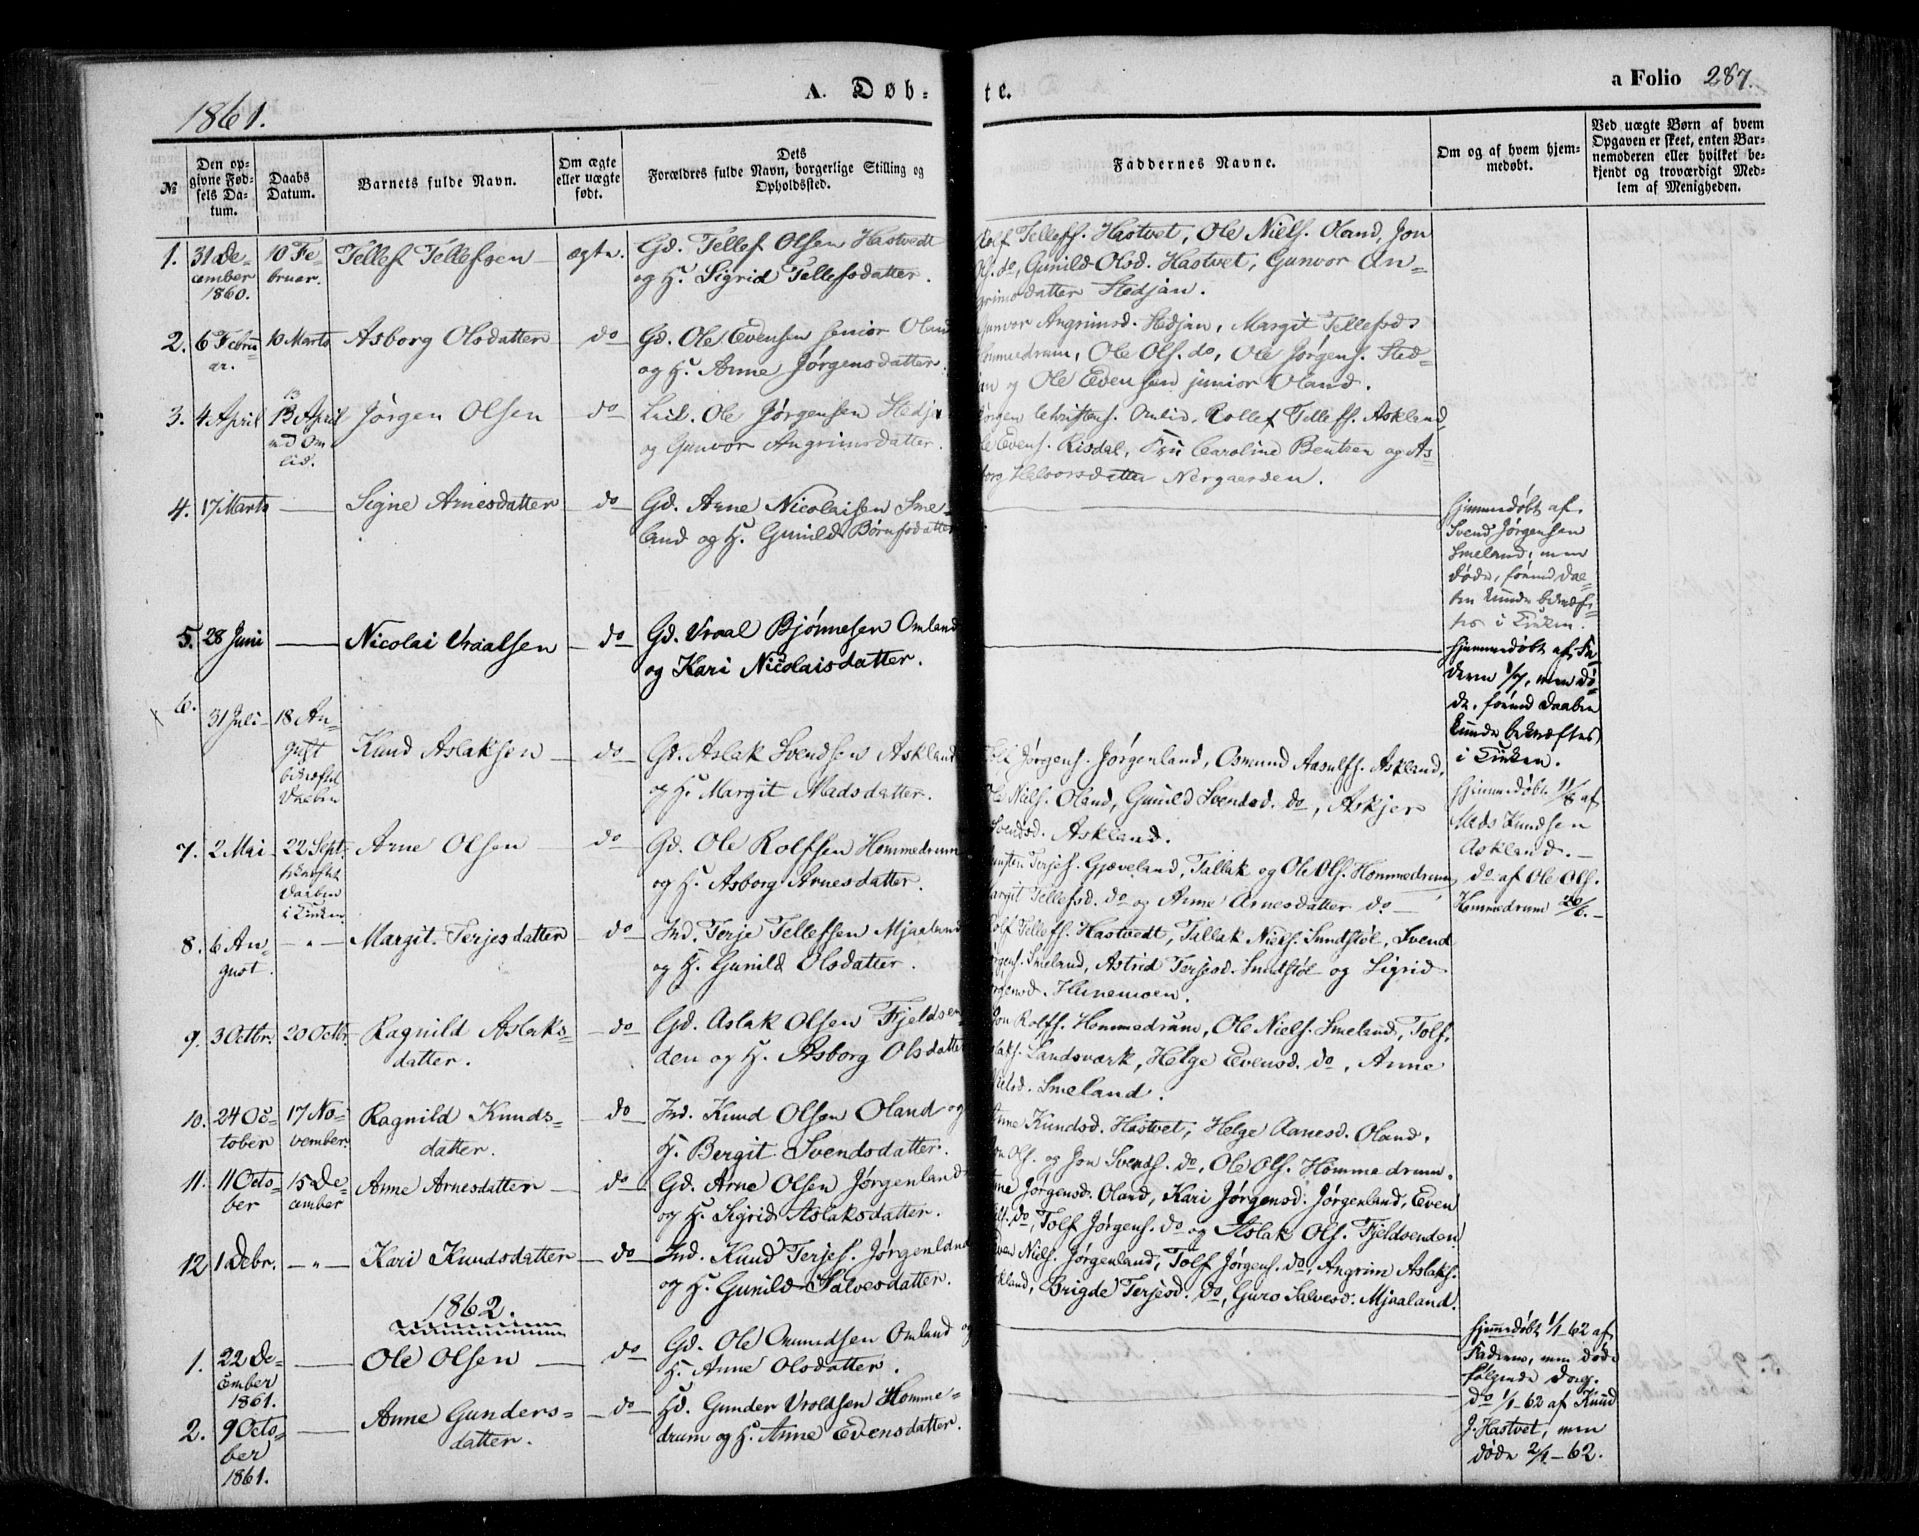 1861.
A. Døb-
te.
a Folio 287.
№
Den op-
givne Fød-
sels Da-
tum.
Daabs
Datum.
Barnets fulde Navn.
Om ægte
eller uægte
født.
Dets
Forældres fulde Navn, borgerlige Stilling og
Opholdssted.
Faddernes Navne.
Om og af hvem hjem-
medøbt.
Ved uægte Børn af hvem
Opgaven er skeet, enten Bar-
nemoderen eller hvilket be-
kjendt og troværdigt Med-
lem af Menigheden.
1. 31 De-
cember
1860.
10 Fe-
bruar.
Tellef Tellefsen
ægte.
Gd. Tellef Olsen Hastvedt
og H. Sigrid Tellefsdatter.
Rolf Tellefs. Hastvet, Ole Niels. Oland, Jon
Ols. do, Gunild Olsd. Hastvet, Gunvor An-
grimsdatter Stedjan.
2. 6 Febru-
ar.
10 Marts
Asborg Olsdatter
do
Gd. Ole Evensen senior Oland
og H. Anne Jørgensdatter.
Gunvor Angrimsd. Stedjan, Margit Tellefsd.
Hommedrum, Ole Ols. do, Ole Jørgens. Sted-
jan og Ole Evensen junior Oland.
3. 4 April
13 April
ved Om-
lid.
Jørgen Olsen
do
Ole Jørgensen Stedja
og Gunvor Angrimsdatter.
Jørgen Christens. Omlid, Rollef Tellefs. Askland,
Ole Evens. Risdal, Fru Caroline Bentsen og As-
borg Halvorsdatter Nergaarden.
4. 17 Marts
Signe Arnesdatter
do
Gd. Arne Nicolaisen Sme-
land og H. Gunild Børufsdatter
hjemmedøbt af
Svend Jørgensen
Smeland, men
døde, førend Daa-
ben kunde bekræf-
tes i Kirken.
5. 28 Juni
Nicolai Vraalsen
do
Gd. Vraal Bjønnesen Omland
og Kari Nicolaisdatter.
hjemmedøbt af Fa-
deren 1/7, men dø-
de, førend Daaben
kunde bekræftes
i Kirken.
6.
31 Juli
18 Au-
gust
bekræftet
Daaben
Knud Aslaksen
do
Gd. Aslak Svendsen Askland
og H. Margit Madsdatter.
Tolf Jørgens. Jørgenland, Osmund Aasulfs. Askland,
Ole Niels. Oland, Gunild Svendsd. do, Askjer
Svendsd. Askland.
hjemmedøbt 11/8 af
Mads Knudsen
Askland.
7. 2 Mai
22 Sept.
bekræftet
Daaben
i Kirken
Arne Olsen
do
Gd. Ole Rolfsen Hommedrum
og H. Asborg Arnesdatter.
Terjes. Gjæveland, Tallak og Ole Ols. Hommedrum,
Margit Tellefsd. do og Anne Arnesdatter do
do af Ole Ols.
Hommedrum 20/6.
8. 6 Au-
gust.
"
Margit Terjesdatter
do
Ind. Terje Tellefsen Mjaaland
og H. Gunild Olsdatter.
Rolf Tellefs. Hastvedt, Tallak Niels. Sundstøl, Svend
Jørgens. Smeland, Astrid Terjesd. Sundstøl og Sigrid
Jørgensd. Hunemoen.
9. 3 Octbr.
20 Octbr.
Ragnild Aslaks-
datter.
do
Gd. Aslak Olsen Fjeldsen-
den og H. Asborg Olsdatter
Jon Rolfs. Hommedrum, Ole Niels. Smeland, Tolf
Aslaks. Landsværk, Helge Evensd. do, Anne
Nielsd. Smeland.
10. 24 Oc-
tober
17 No-
vember
Ragnild Knuds-
datter.
do
Ind. Knud Olsen Oland og
H. Bergit Svendsdatter.
Anne Knudsd. Hastvet, Helge Aanesd. Oland.
Jon Ols. og Jon Svends. do, Ole Ols. Hommedrum.
11. 11 Octo-
ber
15 De-
cember
Anne Arnesdatter
do
Gd. Arne Olsen Jørgenland
og H. Sigrid Aslaksdatter.
Anne Jørgensd. Oland, Kari Jørgensd. Jørgenland, Even
Niels. do, Tolf Jørgens. do og Aslak Ols. Fjeldsenden.
12 1 Debr.
"
Kari Knudsdatter
do
Ind. Knud Terjes. Jørgenland
og H. Gunild Salvesdatter.
Even Niels. Jørgenland, Tolf Jørgens. do, Angrim Aslaks.
Askland, Brigde Terjesd. do, Guro Salvesd. Mjaaland.
1862.
1. 22 De-
cember
1861.
Ole Olsen
do
Gd. Ole Omundsen Omland og
H. Anne Olsdatter.
hjemmedøbt 1/1 62 af
Faderen, men døde
følgende Dag.
2. 9 Octo-
ber
1861.
Anne Gunders-
datter.
do
Hd. Gunder Vroldsen Homme-
drum og H. Anne Evensdatter.
do 1/1-62 af Knud
J. Hastvet, men
døde 2/1-62.